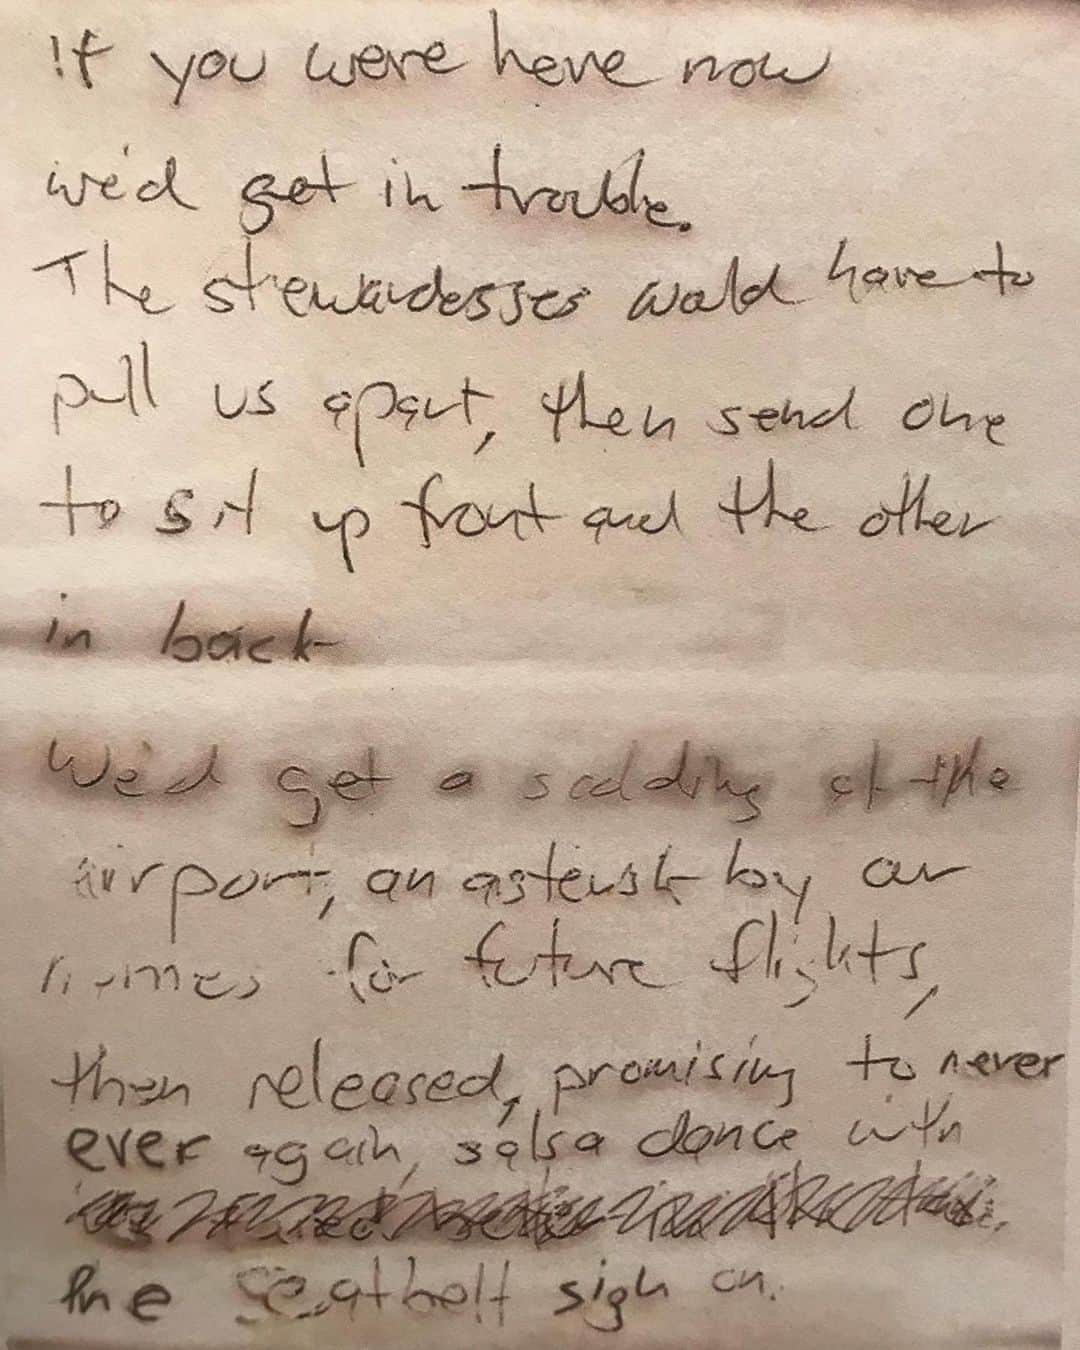 If you were here now
we'd get in trouble.
The stewardesses would have to
pull us apart, then send one
to sit up front and the other
in back
We'd get a scolding at the
airport, an asterisk by our
names for future flights,
then released, promising to never
ever again, salsa dance with
the seatbelt sign on.